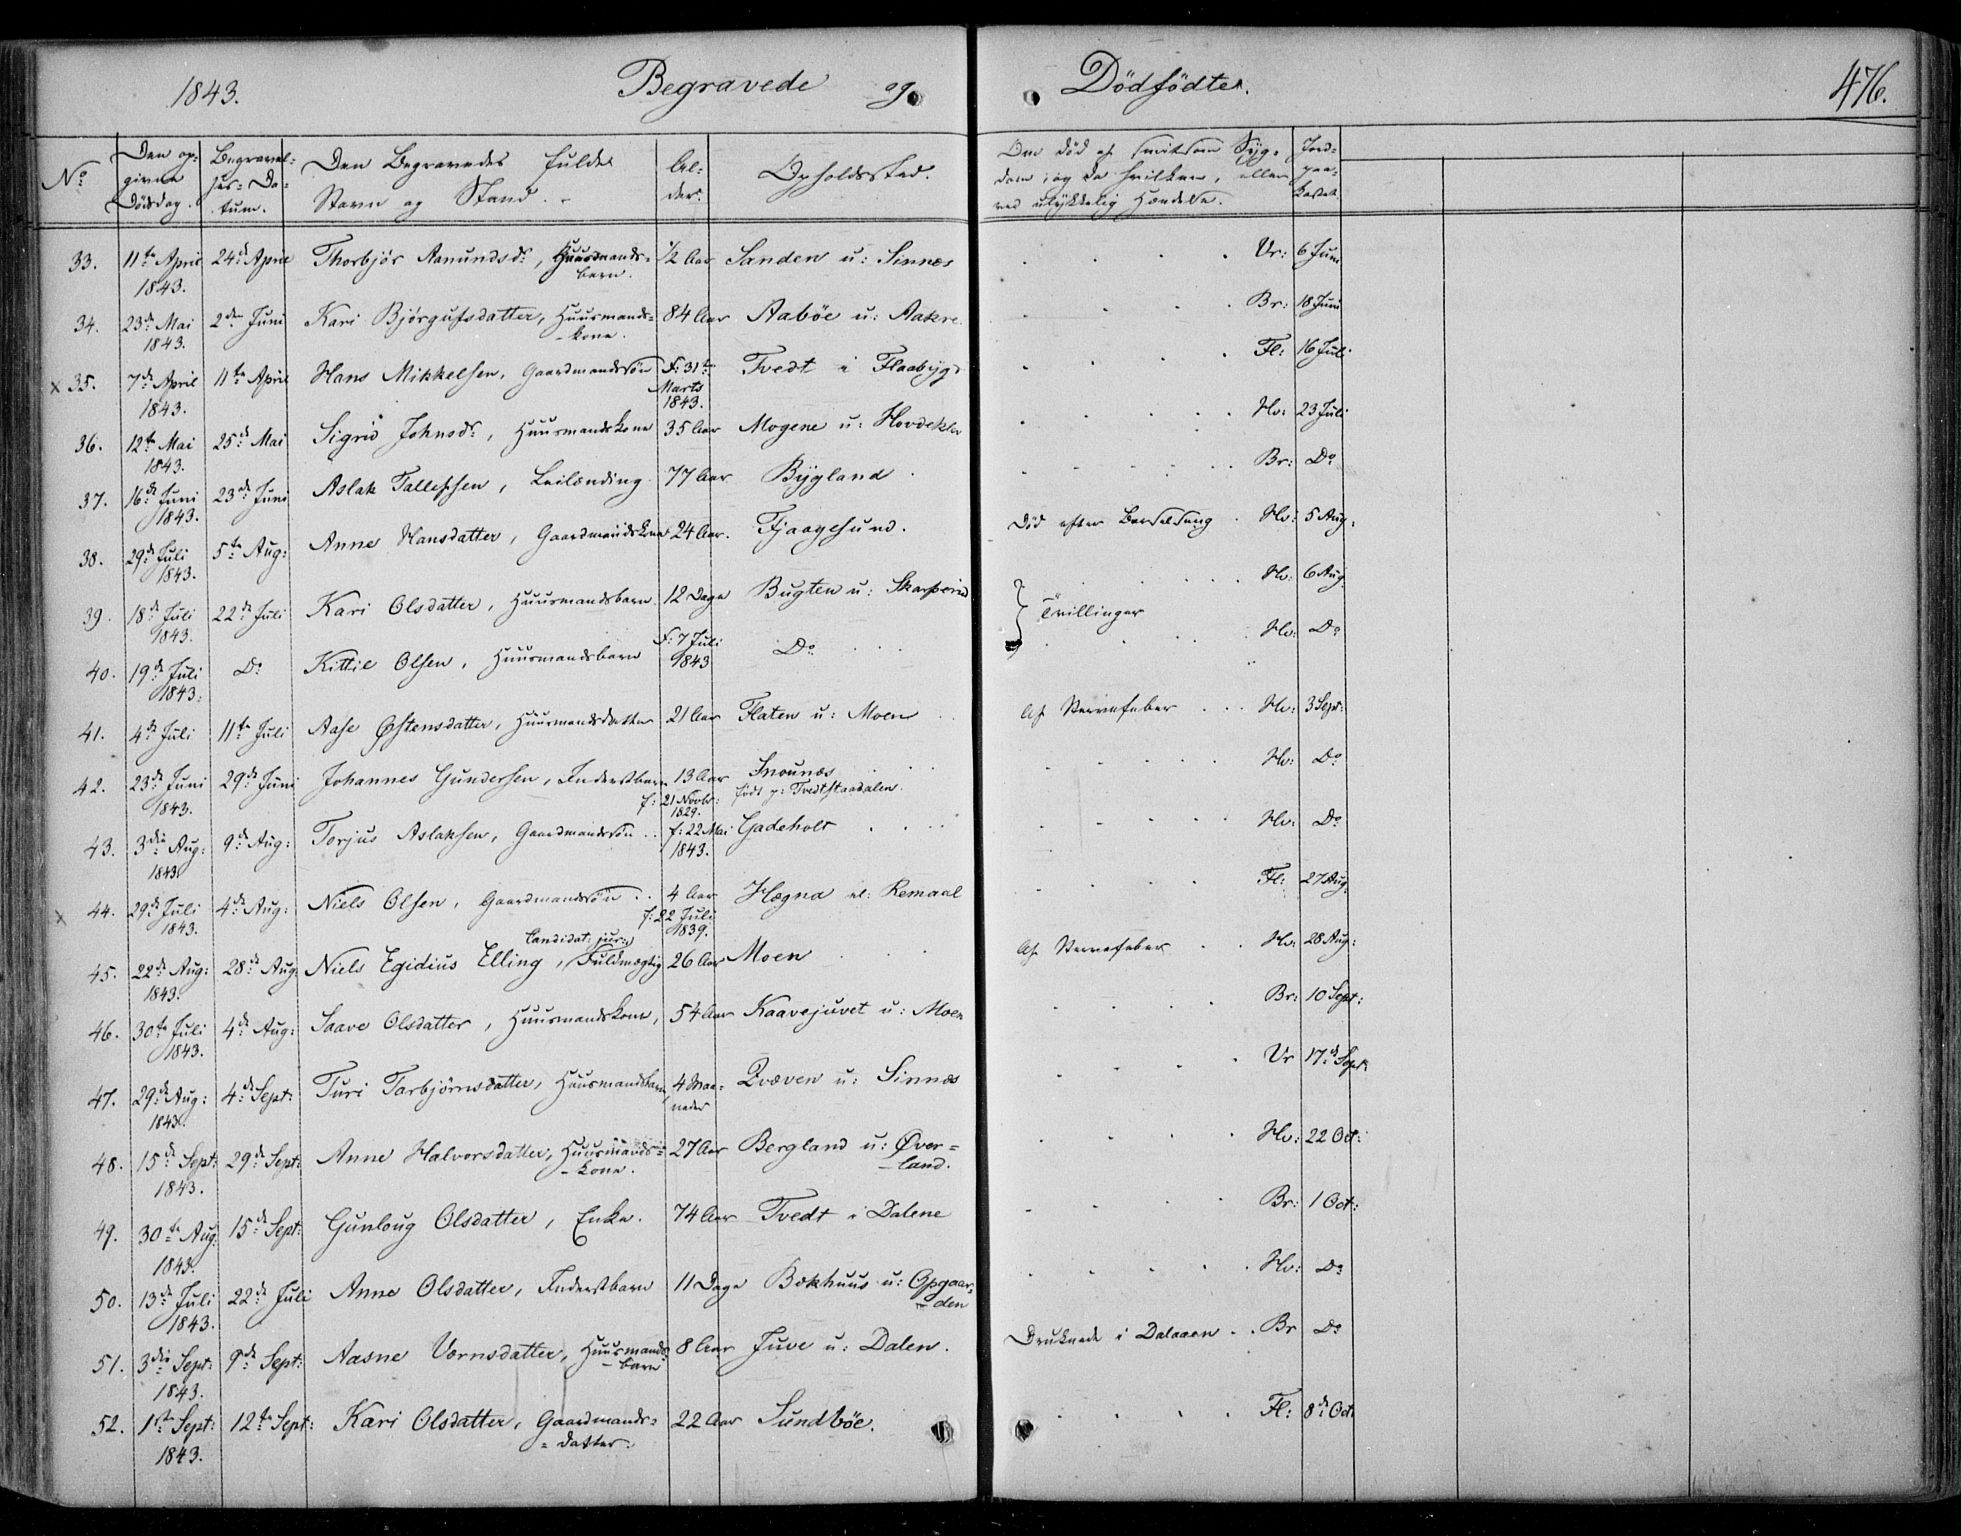 1843. Begravede og Dödfödte. 476.
No Den opgivne Dödsdag. Begravelses-Datum. Den Begravedes fulde Navn og Stand. Alder. Opholdssted. Om död af smitsom Sygdom, og da hvilken, eller ved ulykkelig Hændelse. Jordpaakastet
33. 11te April 1843. 24de April Thorbjör Aanundsdr, Huusmandsbarn. 1/2 Aar Sanden u: Sinnes Vr: 6 Juni
34. 23de Mai 1843. 2den Juni Kari Björgufsdatter, Huusmandskone. 84 Aar Aaböe u: Aakre Br: 18 Juni
x 35. 7de April 1843. 11te April Hans Mikkelsen, Gaardmandssön F: 31te Marts 1843. Tvedt i Flaabygd Fl: 16 Juli
36. 12te Mai 1843. 25de Mai Sigrid Johnsdr, Huusmandskone 35 Aar Mogene u: Hovdeklev Hv: 23 Juli
37. 16de Juni 1843. 23de Juni Aslak Tallefsen, Leilænding 77 Aar Bygland Br: Do
38. 29de Juli 1843. 5te Aug: Anne Hansdatter, Gaardmandskone 24 Aar. Fjaagesund. Död efter Barselseng Hv: 5 Aug:
39. 18de Juli 1843. 22de Juli Kari Olsdatter, Huusmandsbarn 12 Dage Bugten u: Tvillinger Hv: 6 Aug
40. 19de Juli 1843. Do Kittil Olsen, Huusmandsbarn F: 7 Juli 1843 Do Hv: Do
41. 4de Juli 11te Juli Aase Østensdatter, Huusmandsdatter 21 Aar Flaten u: Moen Af Nervefeber Hv: 3 Sept:
42. 23de Juni 1843. 29de Juni Johannes Gundersen, Inderstbarn 13 Aar f: 21 Novbr: 1829. Snounæs födt p: Tvedtstaadalen. Hv: Do
43. 3die Aug: 1843. 9de Aug: Torjus Aslaksen, Gaardmandssön f: 22 Mai 1843. Gadeholt Hv: Do
x 44. 29de Juli 1843. 4de Aug: Niels Olsen, Gaardmandssön 4 Aar f: 22 Juli 1839. Hægna el: Remaal Fl: 27 Aug:
45. 22de Aug: 1843. 28de Aug: Niels Egidius Elling, Candidat: jur: Fuldmægtig 26 Aar Moen Af Nervefeber Hv: 28 Aug:
46. 30te Juli 1843. 4de Aug: Saave Olsdatter, Huusmandskone, 54 Aar Kaavejuvet u: Moen Br: 10 Sept:
47. 29de Aug: 1843. 4de Sept: Turi Tarbjörnsdatter, Huusmandsbarn, 4 Maaneder Qvæven u: Sinnes Vr 17de Sept:
48. 15de Sept: 1843. 29de Sept: Anne Halvorsdatter, Huusmandskone. 27 Aar Bergland u: Øverland. Hv: 22 Oct:
49. 30te Aug: 1843. 15de Sept: Gunloug Olsdatter, Enke. 74 Aar Tvedt i Dalene Br: 1 Oct:
50. 13de Juli 1843. 22de Juli Anne Olsdatter, Inderstbarn 11 Dage Bekhuus u: Opgaarden Hv: Do
51. 3die Sept: 1843. 9de Sept: Aasne Vornsdatter, Huusmandsbarn 8 Aar Juve u: Dalen. Druknede i Dalaaen Br Do
52. 1ste Sept: 1843. 12te Sept: Kari Olsdatter, Gaardmandsdatter. 22 Aar Sundböe. Fl: 8de Oct: